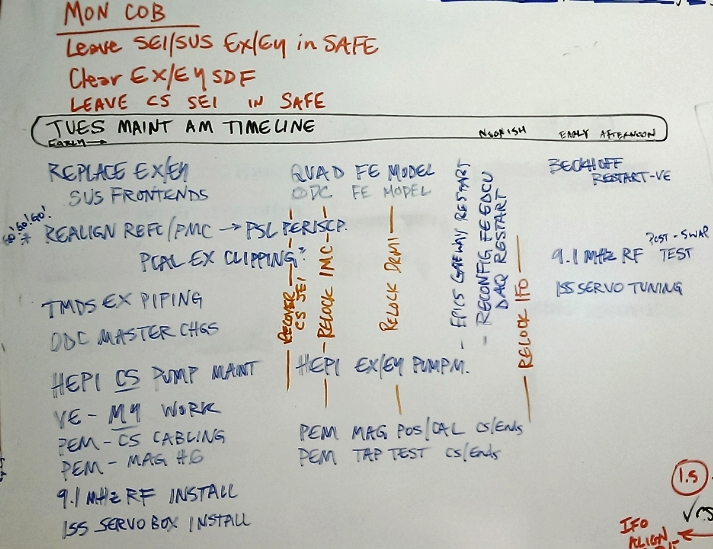 MON COB
Leave SEI/SUS Ex/Ey in SAFE
Clear EX/EY SDF
LEAVE CS SEI IN SAFE
TUES MAINT AM TIMELINE
EARLY→
NOONISH
EARLY AFTERNOON
REPLACE EX/EY
SUS FRONTENDS
REALIGN REFC/PMC → PSL PERISCP.
PCAL EX CLIPPING?
TMDS EX PIPING
ODC MASTER CHGS
HEPI CS PUMP MAINT
VE - MY WORK
PEM - CS CABLING
PEM - MAG HG
9.1 MHz RF INSTALL
ISS SERVO BOX INSTALL
QUAD FE MODEL
ODC FE MODEL
RECOVER
CS SEI
RELOCK IMC
RELOCK DRMI
HEPI EX/EY PUMP M.
PEM MAG POS/CAL CS/Ends
PEM TAP TEST CS/Ends
- EPICS GATEWAY RESTART
- RECONFIG FE EDCU
DAQ RESTART
RELOCK IFO
BECKHOFF
RESTART-VE
9.1 MHz RF POST-SWAP
TEST
ISS SERVO TUNING
1.5
IFO
ALIGN